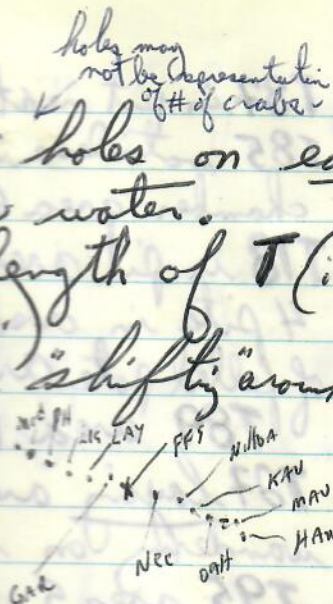 holes may
not be representative
of # of crabs
holes on ea
water.
length of T (i
"shifting" around
Mid PH
LIS LAY FFS Nihoa
KAU
MAU
HAW
GAR NEC OAH